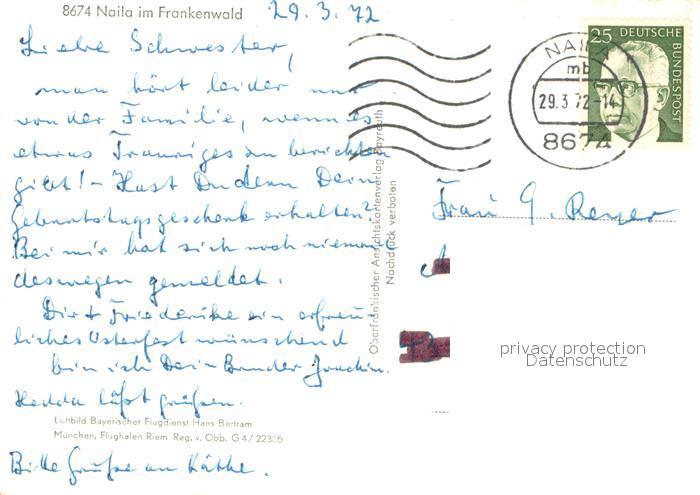 8674 Naila im Frankenwald
29.3.72
Liebe Schwester,
man hört leider nur
von der Familie, wenn es
etwas Trauriges zu berichten
gibt! – Hast Du denn Dein
Geburtstagsgeschenk erhalten?
Bei mir hat sich noch niemand
deswegen gemeldet.
Dir + Friederike ein erfreu-
liches Osterfest wünschend
bin ich Dein Bruder Joachim.
Hedda läßt grüßen.
Luftbild Bayerischer Flugdienst Hans Bertram
München, Flughafen Riem Reg. v. Obb. G 4/22305
Bitte Grüße an Käthe.
Oberfränkischer Ansichtskartenverlag Bayreuth
Nachdruck verboten
25 DEUTSCHE BUNDESPOST
NAILA
mb
29.3.72-14
8674
Frau G.
privacy protection
Datenschutz